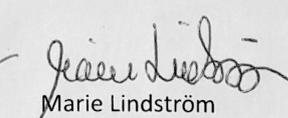 Marie Lindström
Marie Lindström